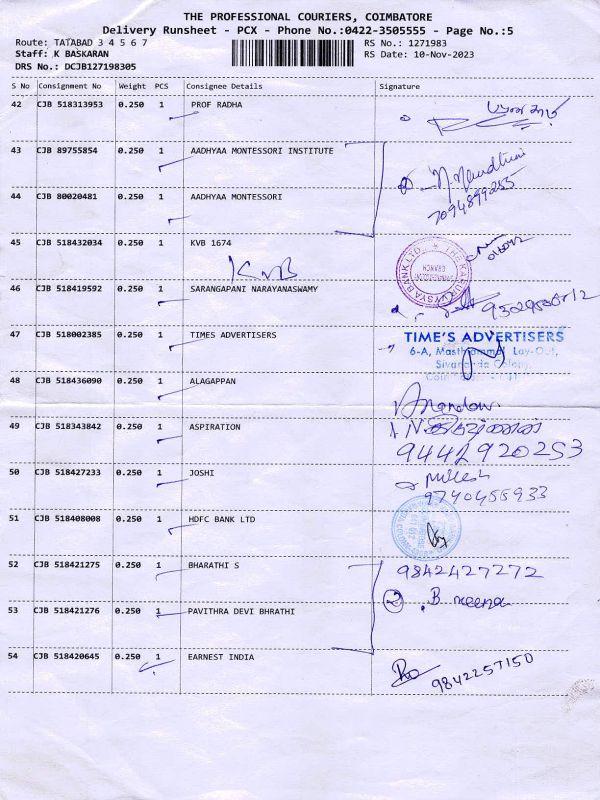 THE PROFESSIONAL COURIERS, COIMBATORE
Delivery Runsheet - PCX - Phone No.:0422-3505555 - Page No.:5
Route: TATABAD 3 4 5 6 7
RS No.: 1271983
Staff: K BASKARAN
RS Date: 10-Nov-2023
DRS No.: DCJB127198305
S No Consignment No Weight PCS Consignee Details Signature
42 CJB 518313953 0.250 1 PROF RADHA
43 CJB 89755854 0.250 1 AADHYAA MONTESSORI INSTITUTE
7094899255
44 CJB 80020481 0.250 1 AADHYAA MONTESSORI
45 CJB 518432034 0.250 1 KVB 1674
KVB
46 CJB 518419592 0.250 1 SARANGAPANI NARAYANASWAMY
47 CJB 518002385 0.250 1 TIMES ADVERTISERS
TIME'S ADVERTISERS
6-A, Lay-Out,
Colony,
48 CJB 518436090 0.250 1 ALAGAPPAN
49 CJB 518343842 0.250 1 ASPIRATION
9442920253
50 CJB 518427233 0.250 1 JOSHI
9740455933
51 CJB 518408008 0.250 1 HDFC BANK LTD
52 CJB 518421275 0.250 1 BHARATHI S
9842427272
53 CJB 518421276 0.250 1 PAVITHRA DEVI BHRATHI
2 B meena
54 CJB 518420645 0.250 1 EARNEST INDIA
9842257150